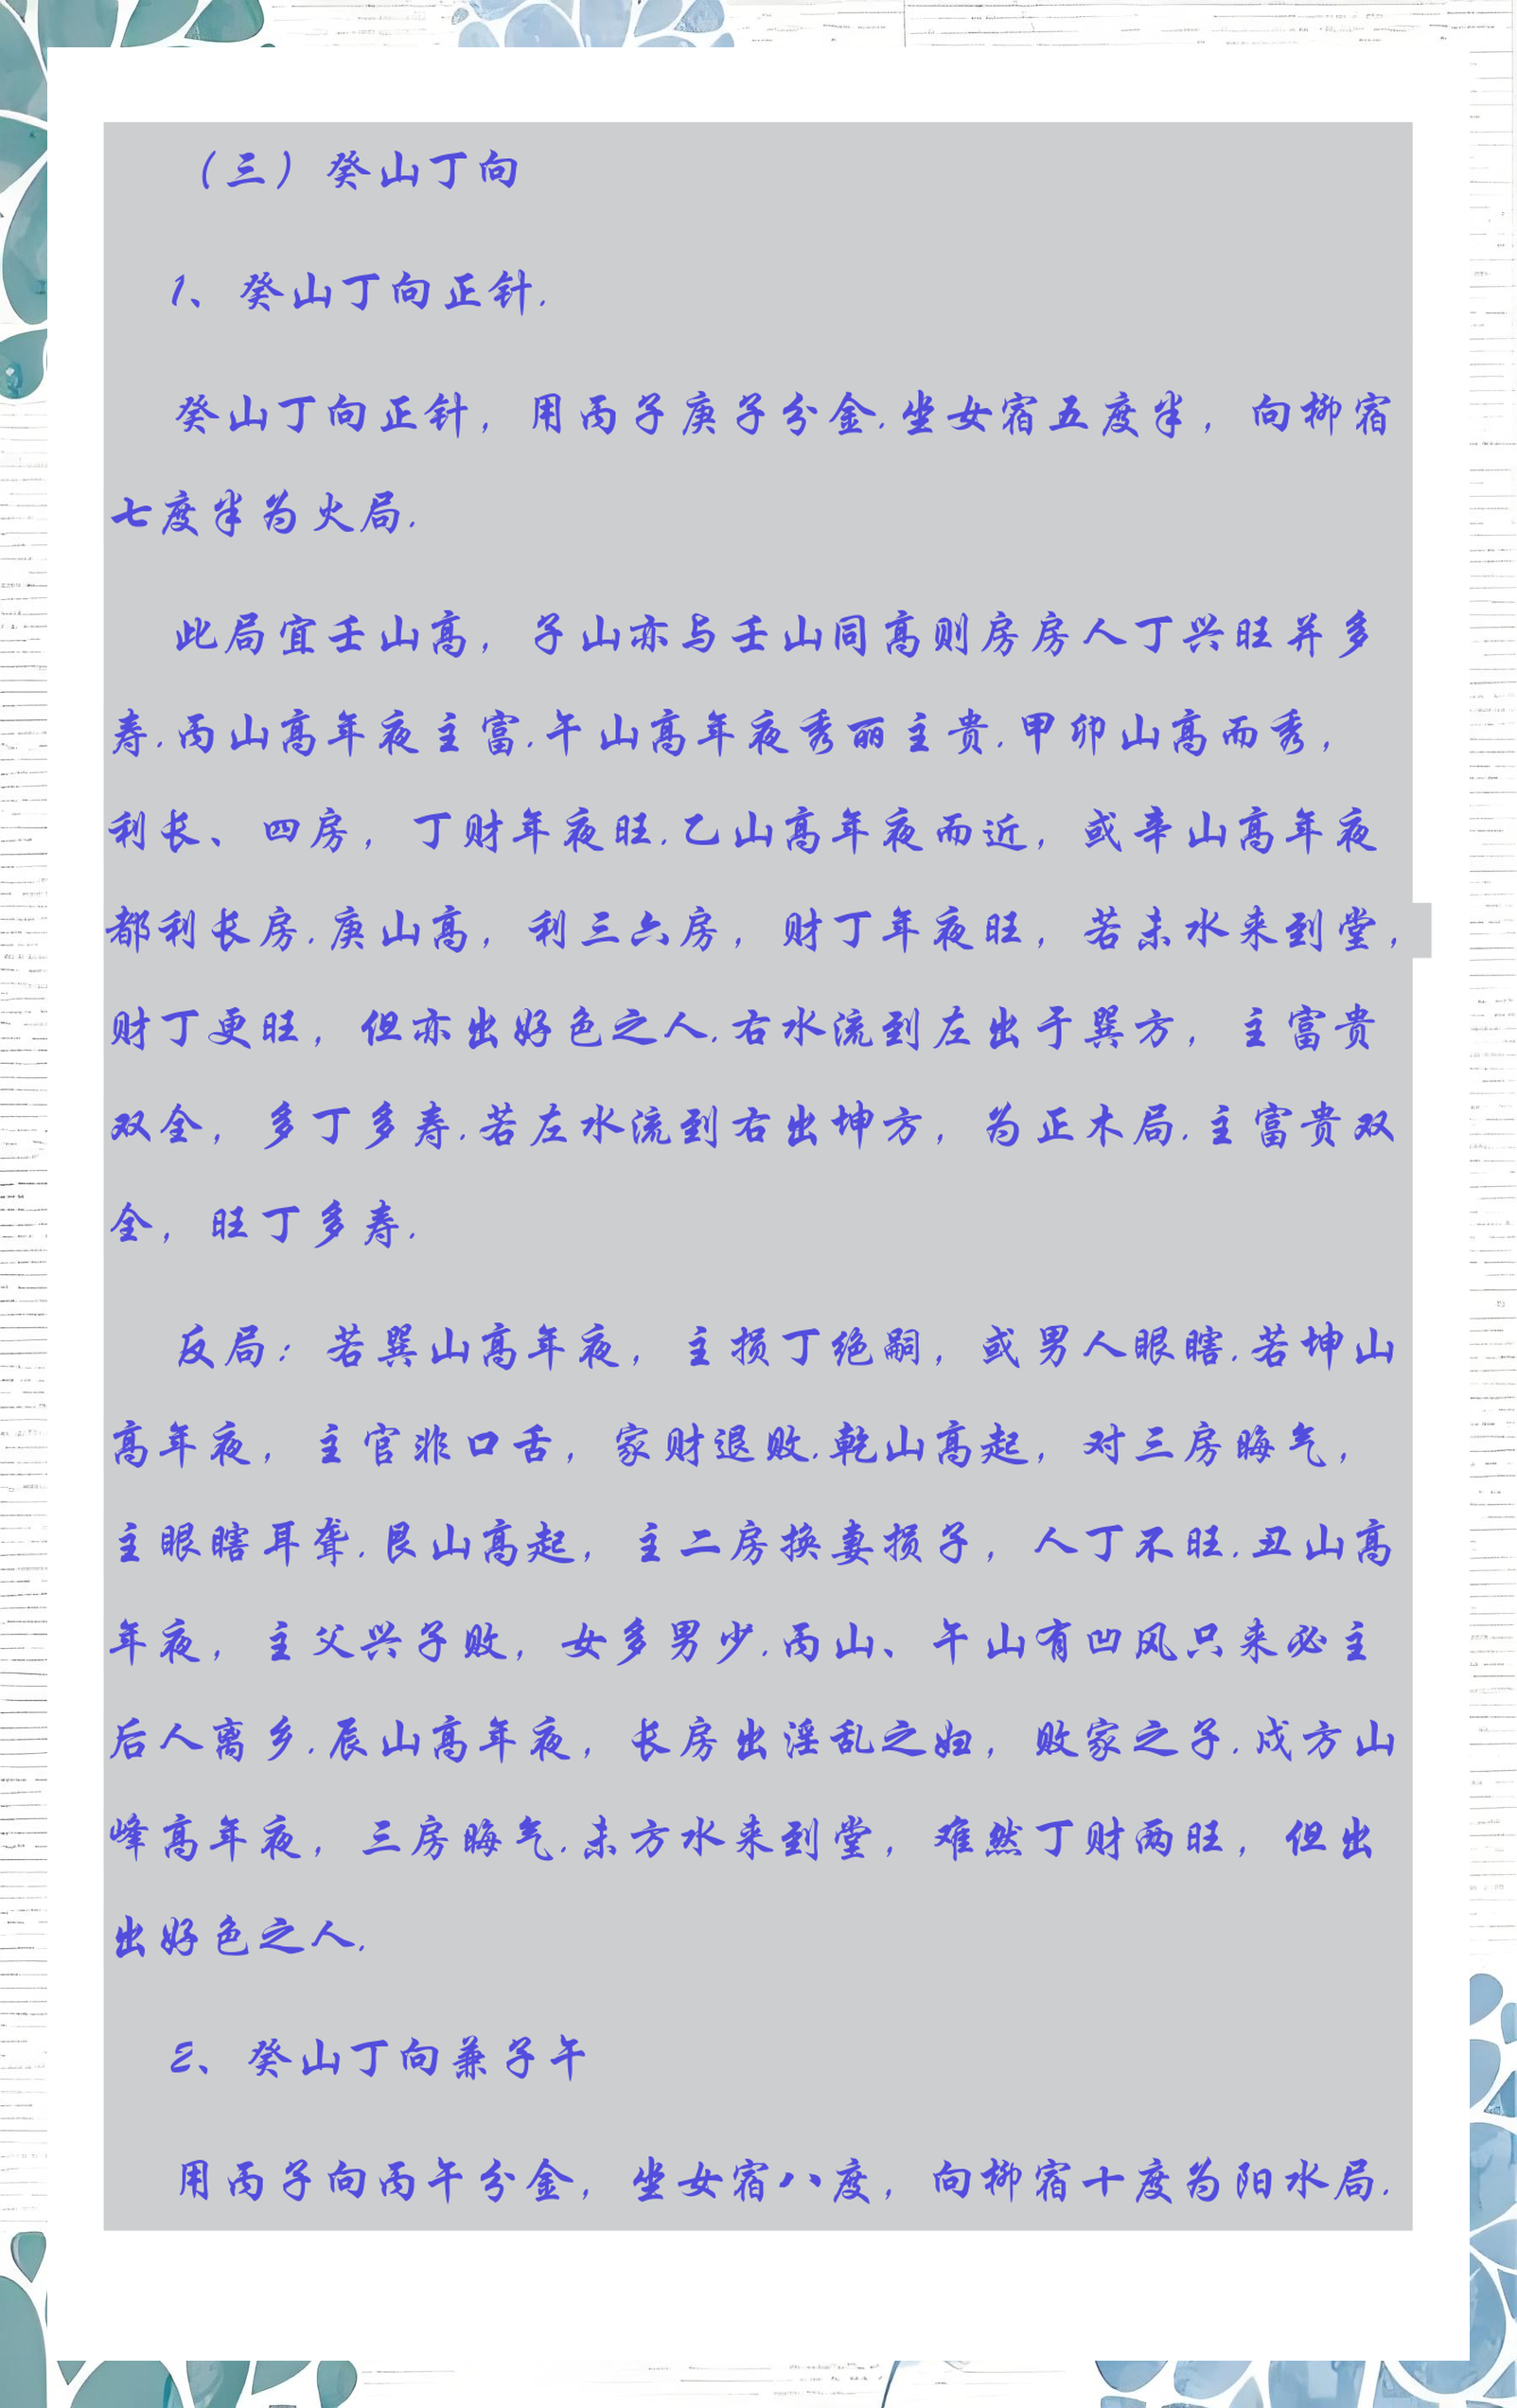 （三）癸山丁向
1、癸山丁向正针.
癸山丁向正针，用丙子庚子分金.坐女宿五度半，向柳宿
七度半为火局.
此局宜壬山高，子山亦与壬山同高则房房人丁兴旺并多
寿.丙山高年夜主富.午山高年夜秀丽主贵.甲卯山高而秀，
利长、四房，丁财年夜旺.乙山高年夜而近，或辛山高年夜
都利长房.庚山高，利三六房，财丁年夜旺，若未水来到堂，
财丁更旺，但亦出好色之人.右水流到左出于巽方，主富贵
双全，多丁多寿.若左水流到右出坤方，为正木局.主富贵双
全，旺丁多寿.
反局：若巽山高年夜，主损丁绝嗣，或男人眼瞎.若坤山
高年夜，主官非口舌，家财退败.乾山高起，对三房晦气，
主眼瞎耳聋.艮山高起，主二房换妻损子，人丁不旺.丑山高
年夜，主父兴子败，女多男少.丙山、午山有凹风只来必主
后人离乡.辰山高年夜，长房出淫乱之妇，败家之子.戌方山
峰高年夜，三房晦气.未方水来到堂，难然丁财两旺，但出
出好色之人.
2、癸山丁向兼子午
用丙子向丙午分金，坐女宿八度，向柳宿十度为阳水局.